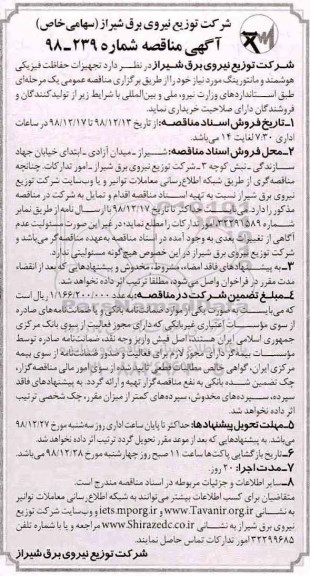 شرکت توزیع نیروی برق شیراز (سهامی خاص)
آگهی مناقصه شماره ۲۳۹-۹۸
شرکت توزیع نیروی برق شیراز در نظر دارد تجهیزات حفاظت فیزیکی
هوشمند و مانتورینگ مورد نیاز خود را از طریق برگزاری مناقصه عمومی یک مرحله‌ای
طبق استانداردهای وزارت نیرو، ملی و بین‌المللی با شرایط زیر از تولیدکنندگان و
فروشندگان دارای صلاحیت خریداری نماید.
۱-تاریخ فروش اسناد مناقصه: از تاریخ ۹۸/۱۲/۱۳ تا ۹۸/۱۲/۱۷ در ساعات
اداری ۷:۳۰ لغایت ۱۴ می‌باشد.
۲-محل فروش اسناد مناقصه: شیراز - میدان آزادی - ابتدای خیابان جهاد
سازندگی - نبش کوچه ۳ - شرکت توزیع نیروی برق شیراز - امور تدارکات. چنانچه
مناقصه‌گری از طریق شبکه اطلاع رسانی معاملات توانیر و یا وب‌سایت شرکت توزیع
نیروی برق شیراز نسبت به تهیه اسناد مناقصه اقدام و تمایل به شرکت در مناقصه
مذکور را دارد باید حداکثر تا تاریخ ۹۸/۱۲/۱۷ با ارسال نامه از طریق نمابر
شماره ۳۲۲۹۱۵۸۹ امور تدارکات را مطلع نماید؛ در غیر این صورت مسئولیت عدم
آگاهی از تغییرات بعدی به وجود آمده در اسناد مناقصه به‌عهده مناقصه‌گر می‌باشد و
شرکت توزیع نیروی برق شیراز در این خصوص هیچ‌گونه مسئولیتی ندارد.
۳-به پیشنهادهای فاقد امضاء، مشروط، مخدوش و پیشنهادهایی که بعد از انقضاء
مدت مقرر در فراخوان واصل می‌شود، مطلقاً ترتیب اثر داده نخواهد شد.
۴-مبلغ تضمین شرکت در مناقصه: به عدد ۱/۱۶۶/۲۰۰/۰۰۰ ریال است
که می‌بایست به صورت یکی از موارد ضمانت‌نامه بانکی و یا ضمانت‌نامه‌های صادره
از سوی مؤسسات اعتباری غیربانکی که دارای مجوز فعالیت از سوی بانک مرکزی
جمهوری اسلامی ایران هستند، اصل فیش واریز وجه نقد، ضمانت‌نامه صادره توسط
مؤسسات بیمه‌گر دارای مجوز لازم برای فعالیت و صدور ضمانت‌نامه از سوی بیمه
مرکزی ایران، گواهی خالص مطالبات قطعی تایید شده از سوی امور مالی مناقصه‌گزار،
چک تضمین شده بانکی به نفع مناقصه‌گزار تهیه و ارائه گردد. به پیشنهادهای فاقد
سپرده، سپرده‌های مخدوش، سپرده‌های کمتر از میزان مقرر، چک شخصی ترتیب
اثر داده نخواهد شد.
۵-مهلت تحویل پیشنهادها: حداکثر تا پایان ساعت اداری روز سه‌شنبه مورخ ۹۸/۱۲/۲۷
می‌باشد. به پیشنهادهایی که بعد از موعد مقرر تحویل گردد ترتیب اثر داده نخواهد شد.
۶-تاریخ بازگشایی پاکت‌ها ساعت ۱۱ صبح روز چهارشنبه مورخ ۹۸/۱۲/۲۸ می‌باشد.
۷-مدت اجرا: ۲۰ روز.
۸-سایر اطلاعات و جزئیات مربوطه در اسناد مناقصه مندرج است.
متقاضیان برای کسب اطلاعات بیشتر می‌توانند به شبکه اطلاع رسانی معاملات توانیر
به نشانی www.Tavanir.org.ir و iets.mporg.ir و وب‌سایت شرکت توزیع
نیروی برق شیراز به نشانی www.Shirazedc.co.ir مراجعه و یا با شماره تلفن
۳۲۲۹۹۶۸۵ امور تدارکات تماس حاصل نمایند.
شرکت توزیع نیروی برق شیراز